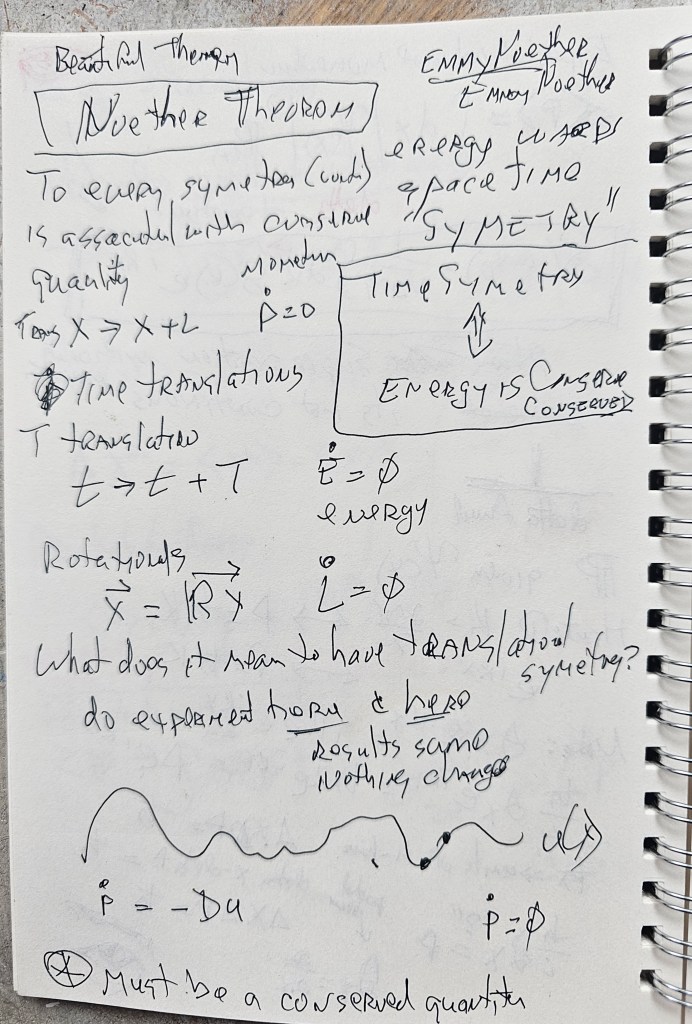 Beautiful Theorem
EMMY Noether
EMMY Noether
Noether Theorom
To every symetry (conti)
is associated with conserve
quantity
energy
space time
"SYMETRY"
Momentum
Ṗ=0
Trans X → X + L
Time Symetry
⇕
Energy is Conserve
CONSERVED
Time translations
T translation
t → t + T
Ė = ∅
energy
Rotationals
x⃗ = Rx⃗
L̇ = ∅
What does it mean to have TRANSlational
symetry?
do experiment here & here
Results same
Nothing change
u(x)
Ṗ = - Du
Ṗ = ∅
Must be a conserved quantity